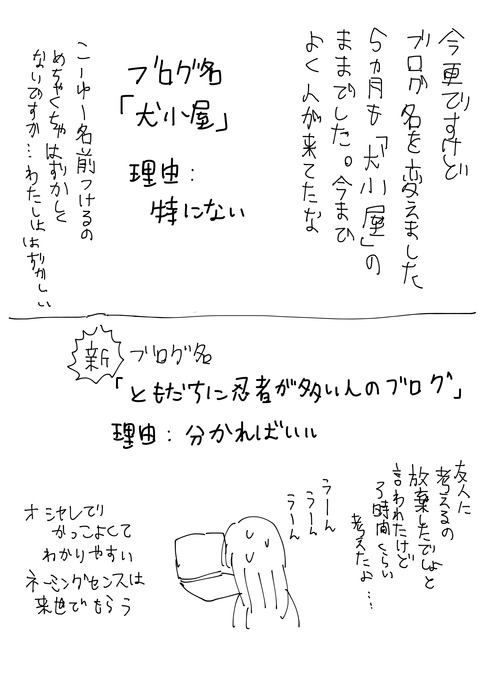 今更ですけど
ブログ名を変えました
5ヵ月も「犬小屋」の
ままでした。今まで
よく人が来てたな
ブログ名
「犬小屋」
理由:
特にない
こーゆー名前つけるの
めちゃくちゃはずかしく
ないですか…わたしははずかしい
新 ブログ名
「ともだちに忍者が多い人のブログ」
理由:分かればいい
友人に
考えるの
放棄したでしょと
言われたけど
3時間くらい
考えたよ…
うーん
うーん
うーん
オシャレで
かっこよくて
わかりやすい
ネーミングセンスは
来世でもらう